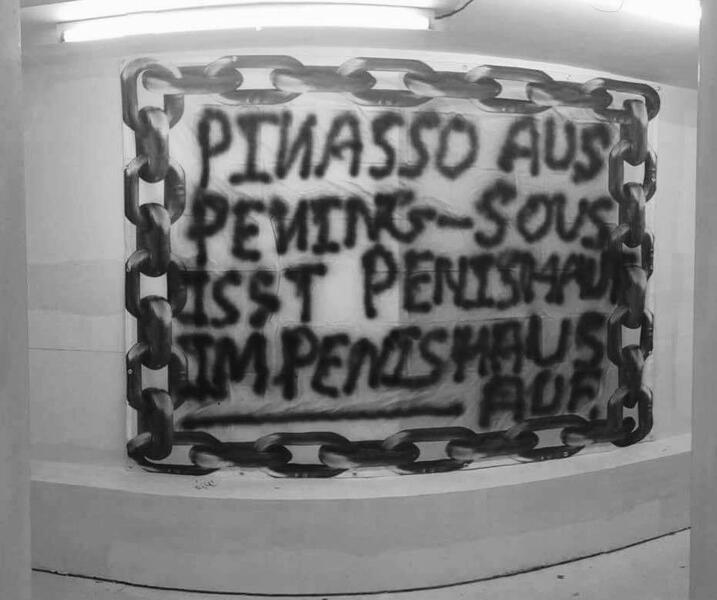 PINASSO AUS
PENING-SOUS
ISST PENISHAUT
IM PENISHAUS
AUF.